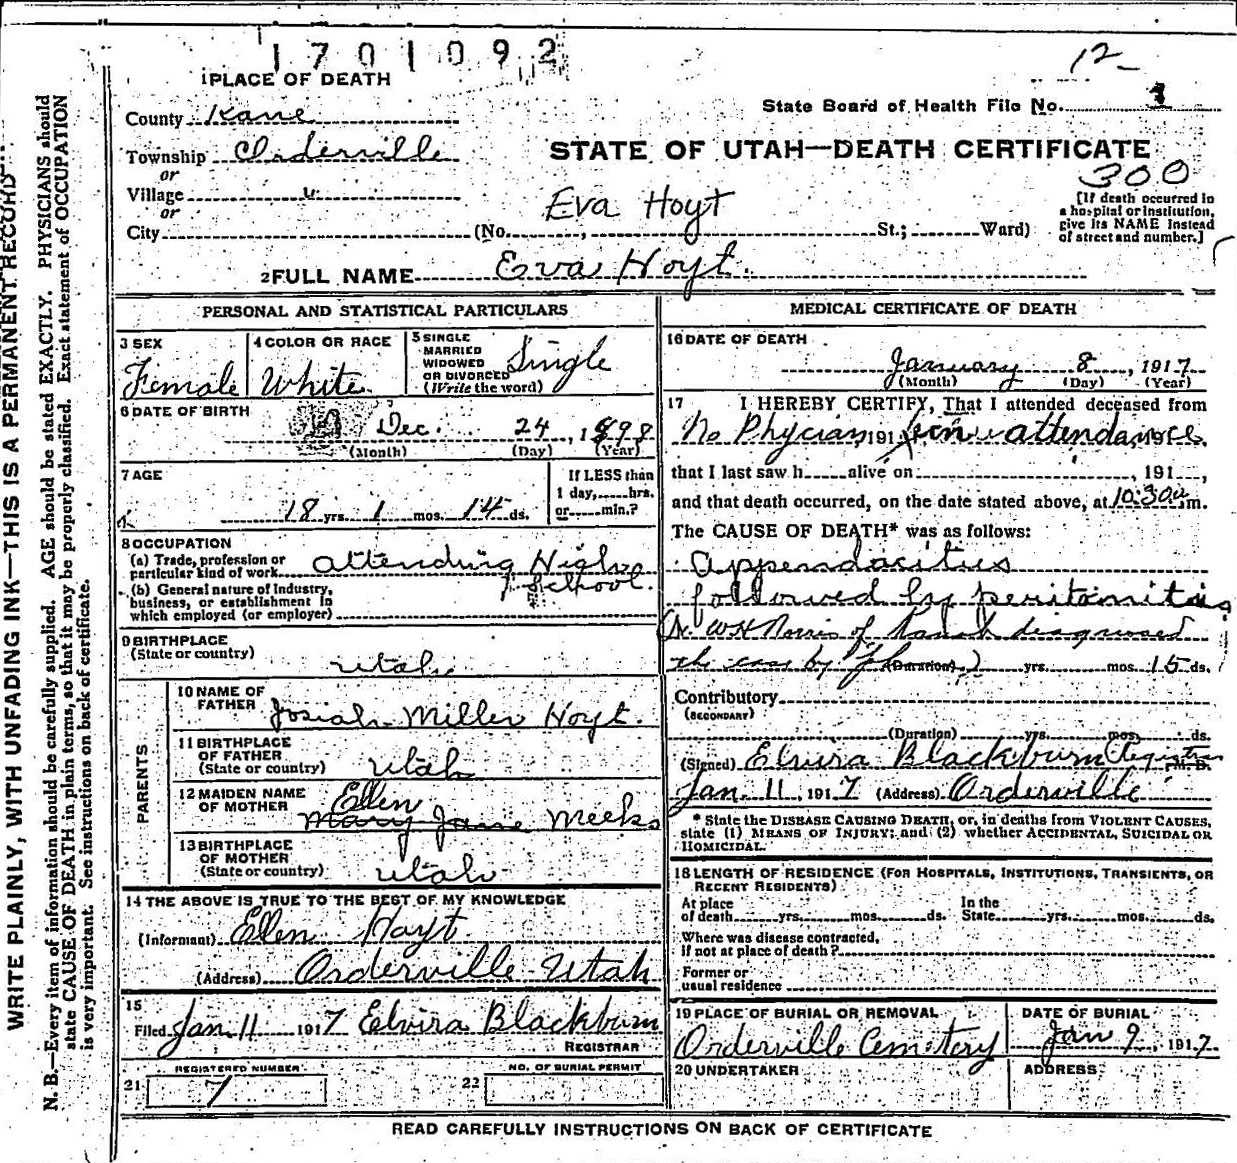 1701092
12
1 PLACE OF DEATH
State Board of Health File No. 1
County Kane
Township Orderville
or
STATE OF UTAH—DEATH CERTIFICATE
300
Village "
or
Eva Hoyt
City (No. , St.; Ward)
[If death occurred in
a hospital or institution,
give its NAME instead
of street and number.]
2 FULL NAME Eva Hoyt.
WRITE PLAINLY, WITH UNFADING INK—THIS IS A PERMANENT RECORD
N. B.—Every item of information should be carefully supplied. AGE should be stated EXACTLY. PHYSICIANS should
state CAUSE OF DEATH in plain terms, so that it may be properly classified. Exact statement of OCCUPATION
is very important. See instructions on back of certificate.
PERSONAL AND STATISTICAL PARTICULARS
3 SEX
Female
4 COLOR OR RACE
White
5 SINGLE
MARRIED
WIDOWED
OR DIVORCED
(Write the word)
Single
6 DATE OF BIRTH
Dec. 24, 1898
(Month) (Day) (Year)
7 AGE
18 yrs. 1 mos. 14 ds.
If LESS than
1 day, hrs.
or min.?
8 OCCUPATION
(a) Trade, profession or
particular kind of work attending High
School.
(b) General nature of Industry,
business, or establishment in
which employed (or employer)
9 BIRTHPLACE
(State or country)
Utah
PARENTS
10 NAME OF
FATHER Josiah Miller Hoyt.
11 BIRTHPLACE
OF FATHER
(State or country) Utah
12 MAIDEN NAME
OF MOTHER Ellen
Mary Jane Meeks
13 BIRTHPLACE
OF MOTHER
(State or country) Utah
14 THE ABOVE IS TRUE TO THE BEST OF MY KNOWLEDGE
(Informant) Ellen Hoyt.
(Address) Orderville Utah
15
Filed Jan. 11 1917 Elvira Blackburn
REGISTRAR
REGISTERED NUMBER
21 7
NO. OF BURIAL PERMIT
22
MEDICAL CERTIFICATE OF DEATH
16 DATE OF DEATH
January 8, 1917
(Month) (Day) (Year)
17 I HEREBY CERTIFY, That I attended deceased from
No Phycian 191 in attendance
that I last saw h alive on , 191
and that death occurred, on the date stated above, at 10:30 a m.
The CAUSE OF DEATH* was as follows:
Appendacitus
followed by peritonitis
Dr. W H Norris of Kanab diagnosed
the case by (Duration) yrs. mos. 15 ds.
Contributory
(SECONDARY)
(Duration) yrs. mos. ds.
(Signed) Elvira Blackburn Registrar M. D.
Jan. 11, 1917 (Address) Orderville
* State the DISEASE CAUSING DEATH, or, in deaths from VIOLENT CAUSES,
state (1) MEANS OF INJURY; and (2) whether ACCIDENTAL, SUICIDAL OR
HOMICIDAL.
18 LENGTH OF RESIDENCE (FOR HOSPITALS, INSTITUTIONS, TRANSIENTS, OR
RECENT RESIDENTS)
At place
of death yrs. mos. ds.
In the
State yrs. mos. ds.
Where was disease contracted,
if not at place of death?
Former or
usual residence
19 PLACE OF BURIAL OR REMOVAL
Orderville Cemetery
DATE OF BURIAL
Jan 9, 1917.
20 UNDERTAKER
ADDRESS
READ CAREFULLY INSTRUCTIONS ON BACK OF CERTIFICATE